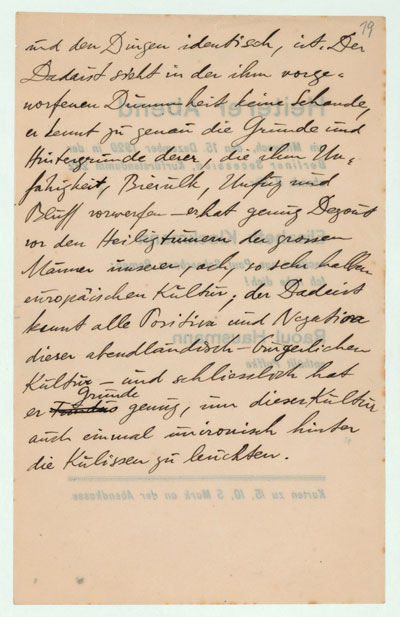 19
und den Dingen identisch, ist. Der
Dadaist sieht in der ihm vorge-
worfenen Dummheit keine Schande,
er kennt zu genau die Gründe und
Hintergründe derer, die ihm Un-
fähigkeit, Bierulk, Unfug und
Bluff vorwerfen — er hat genug Degout
vor den Heiligtümern der grossen
Männer unserer ach so sehr hallen
europäischen Kultur; der Dadaist
kennt alle Positiva und Negativa
dieser abendländisch-bürgerlichen
Kultur — und schliesslich hat
er Gründe genug, um dieser Kultur
auch einmal unironisch hinter
die Kulissen zu leuchten.
Heiterer Abend
am Mittwoch, den 15. Dezember 1920 in der
Berliner Secession, Kurfürstendamm
Raoul Hausmann
Karten zu 15, 10, 5 Mark an der Abendkasse